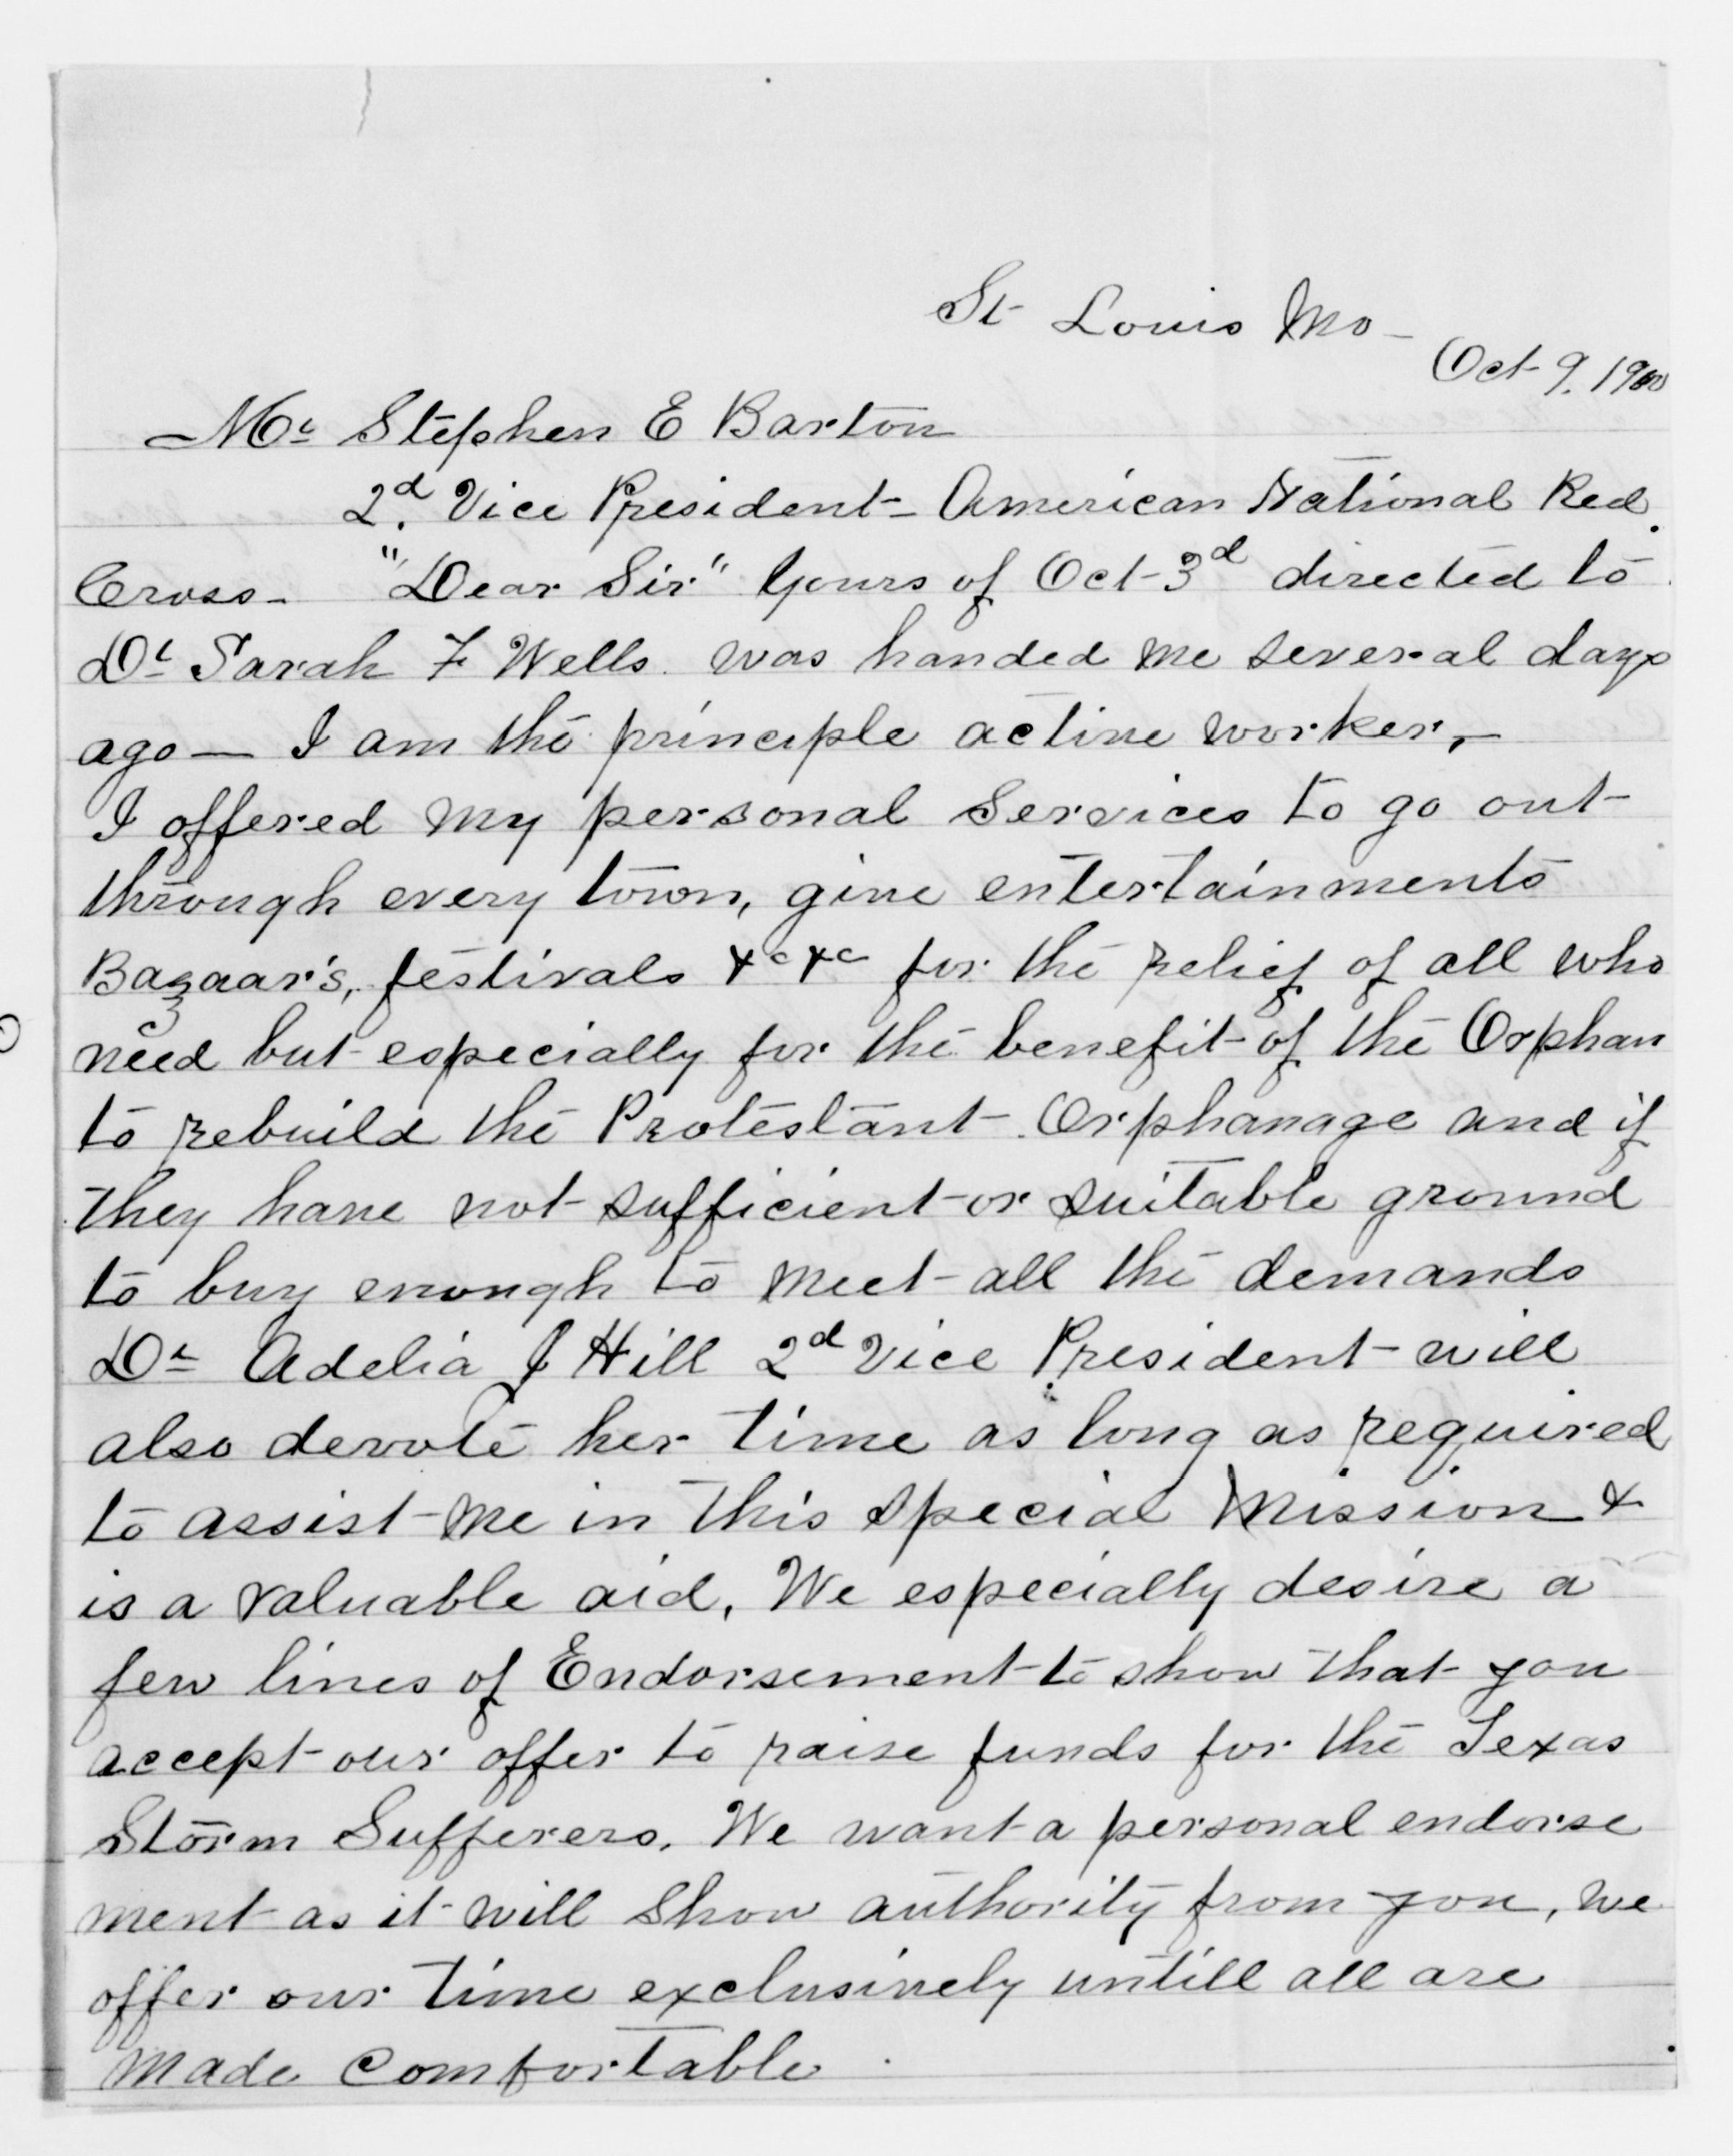 St Louis Mo -
Oct 9. 1900
Mr Stephen E Barton
2d. Vice President - American National Red
Cross - "Dear Sir" Yours of Oct 3d directed to
Dr Sarah F Wells. was handed me several days
ago — I am the principle active worker, -
I offered my personal services to go out
through every town, give entertainments
Bazaar's, festivals &c &c for the relief of all who
need but especially for the benefit of the Orphan
to rebuild the Protestant Orphanage and if
they have not sufficient or suitable ground
to buy enough to meet all the demands
Dr Adelia J Hill 2d Vice President will
also devote her time as long as required
to assist me in this special Mission &
is a valuable aid, We especially desire a
few lines of Endorsement to show that you
accept our offer to raise funds for the Texas
Storm Sufferers. We want a personal endorse
ment as it will show authority from you, we
offer our time exclusively untill all are
made Comfortable